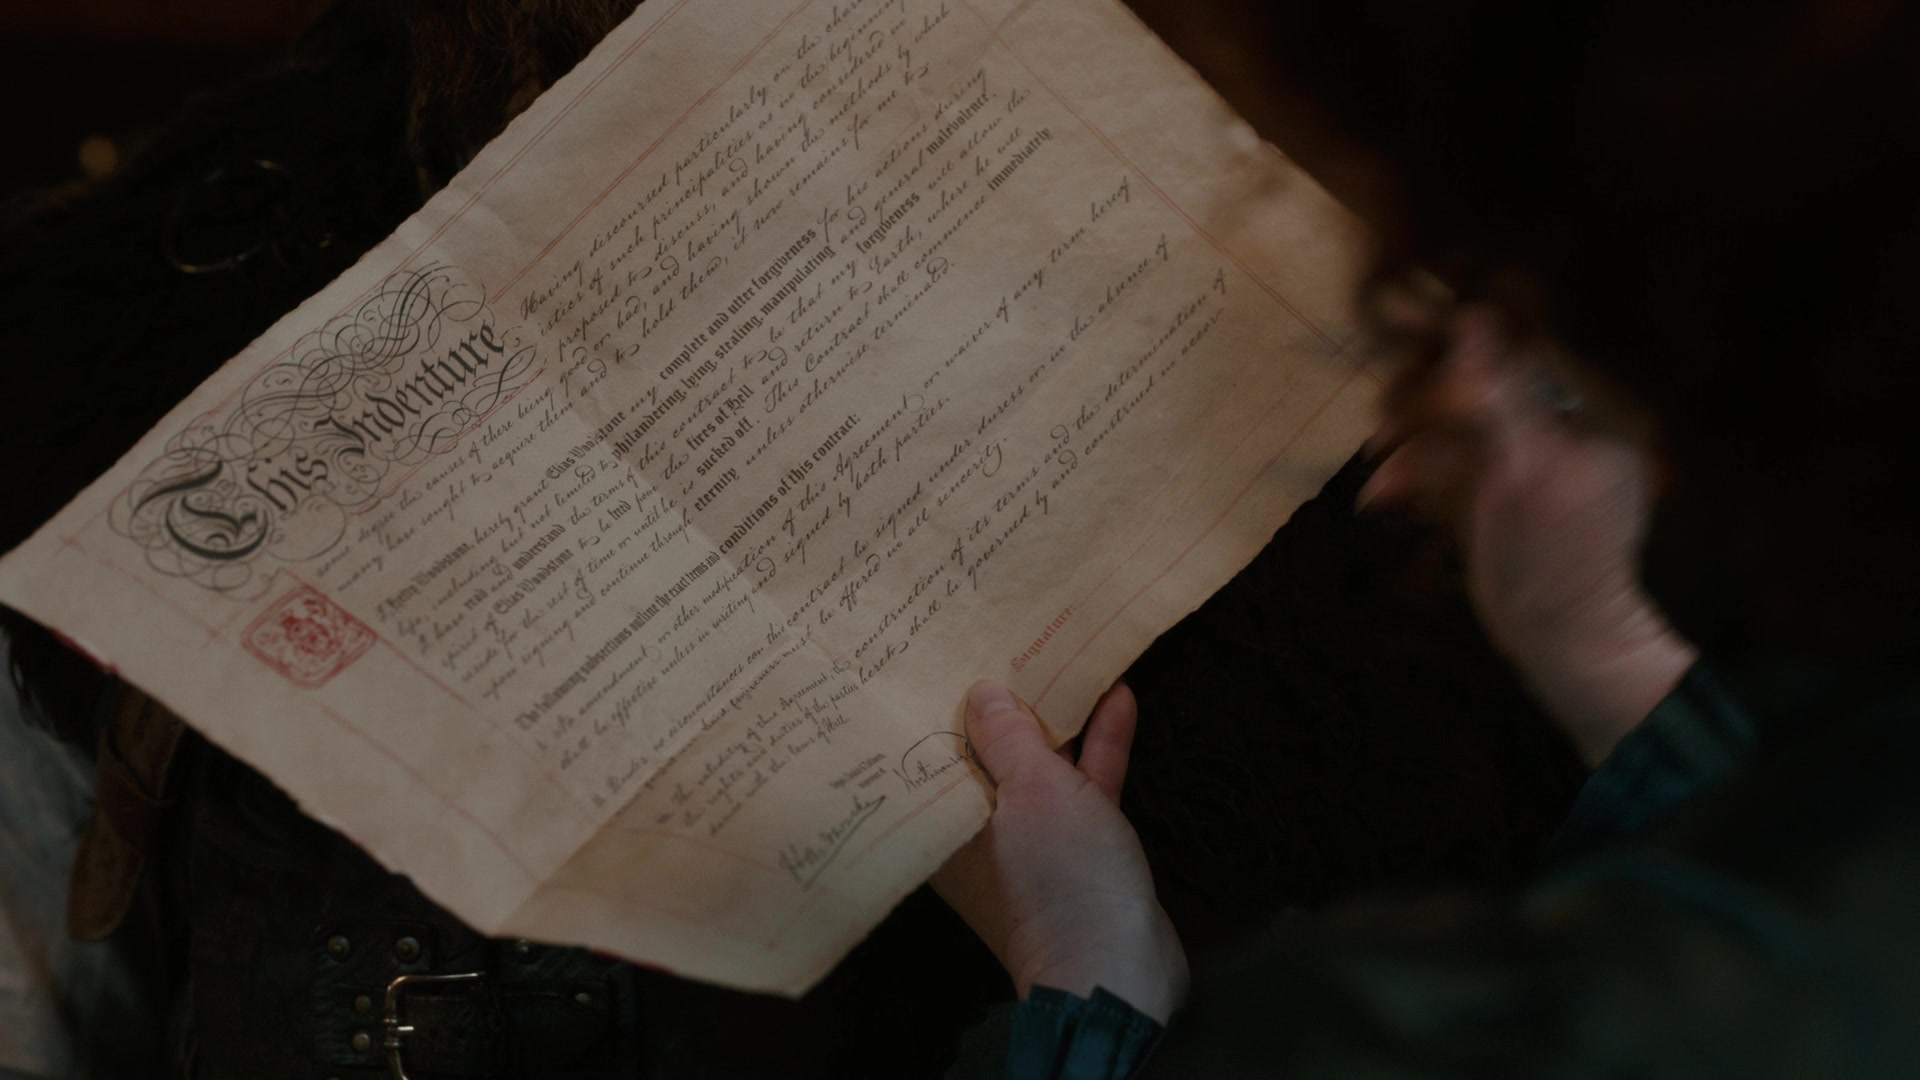 This Indenture
Having discoursed particularly on the char
istics of such principalities as in the beginning
proposed to discuss, and having considered in
some degree the causes of there being good or bad, and having shown the methods by which
many have sought to acquire them and to hold them, it now remains for me to
I Hetty Woodstone, hereby grant Elias Woodstone my complete and utter forgiveness for his actions during
life, including but not limited to philandering, lying, stealing, manipulating and general malevolence.
I have read and understand the terms of this contract to be that my forgiveness will allow the
spirit of Elias Woodstone to be freed from the fires of Hell and return to Earth, where he will
reside for the rest of time or until he is sucked off. This Contract shall commence immediately
upon signing and continue through eternity unless otherwise terminated.
The following subsections outline the exact terms and conditions of this contract:
No amendment or other modification of this Agreement or waiver of any term hereof
shall be effective unless in writing and signed by both parties.
Under no circumstances can this contract be signed under duress or in the absence of
must be offered in all sincerity.
The validity of this Agreement, the construction of its terms and the determination of
the rights and duties of the parties hereto shall be governed by and construed in accor
dance with the laws of Hell.
Signature: